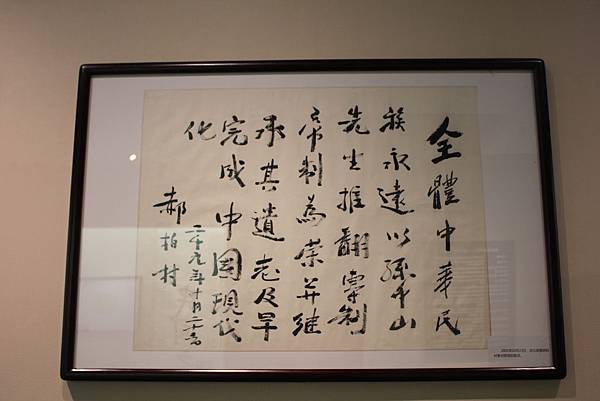 全體中華民
族永遠以孫中山
先生推翻專制
帝制為榮并繼
承其遺志及早
完成中國現代
化
郝柏村
二千九年十月二十